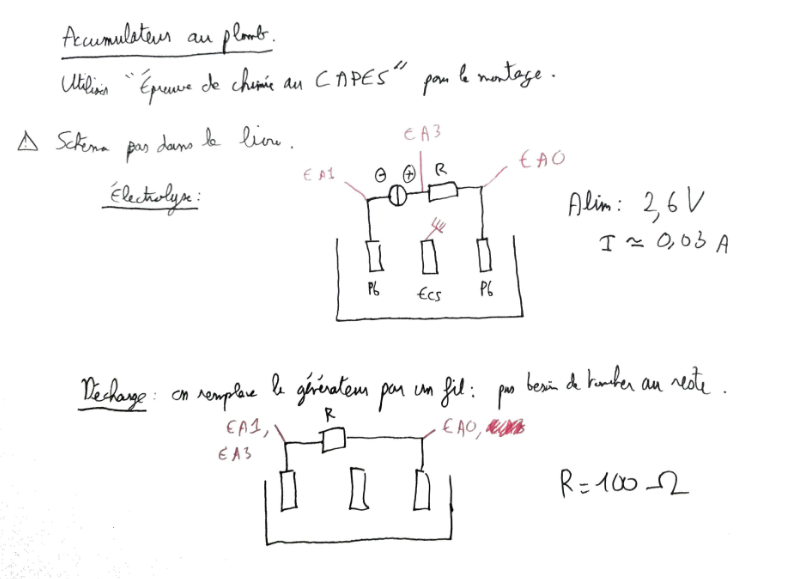 Accumulateur au plomb.
Utiliser "Épreuve de chimie au CAPES" pour le montage.
⚠ Schéma pas dans le livre.
Électrolyse :
EA3
EA1
⊖ ⊕ R
EA0
Alim : 2,6 V
I ≃ 0,03 A
Pb
ECS
Pb
Décharge : on remplace le générateur par un fil : pas besoin de toucher au reste.
R
EA1,
EA3
EA0,
R = 100 Ω